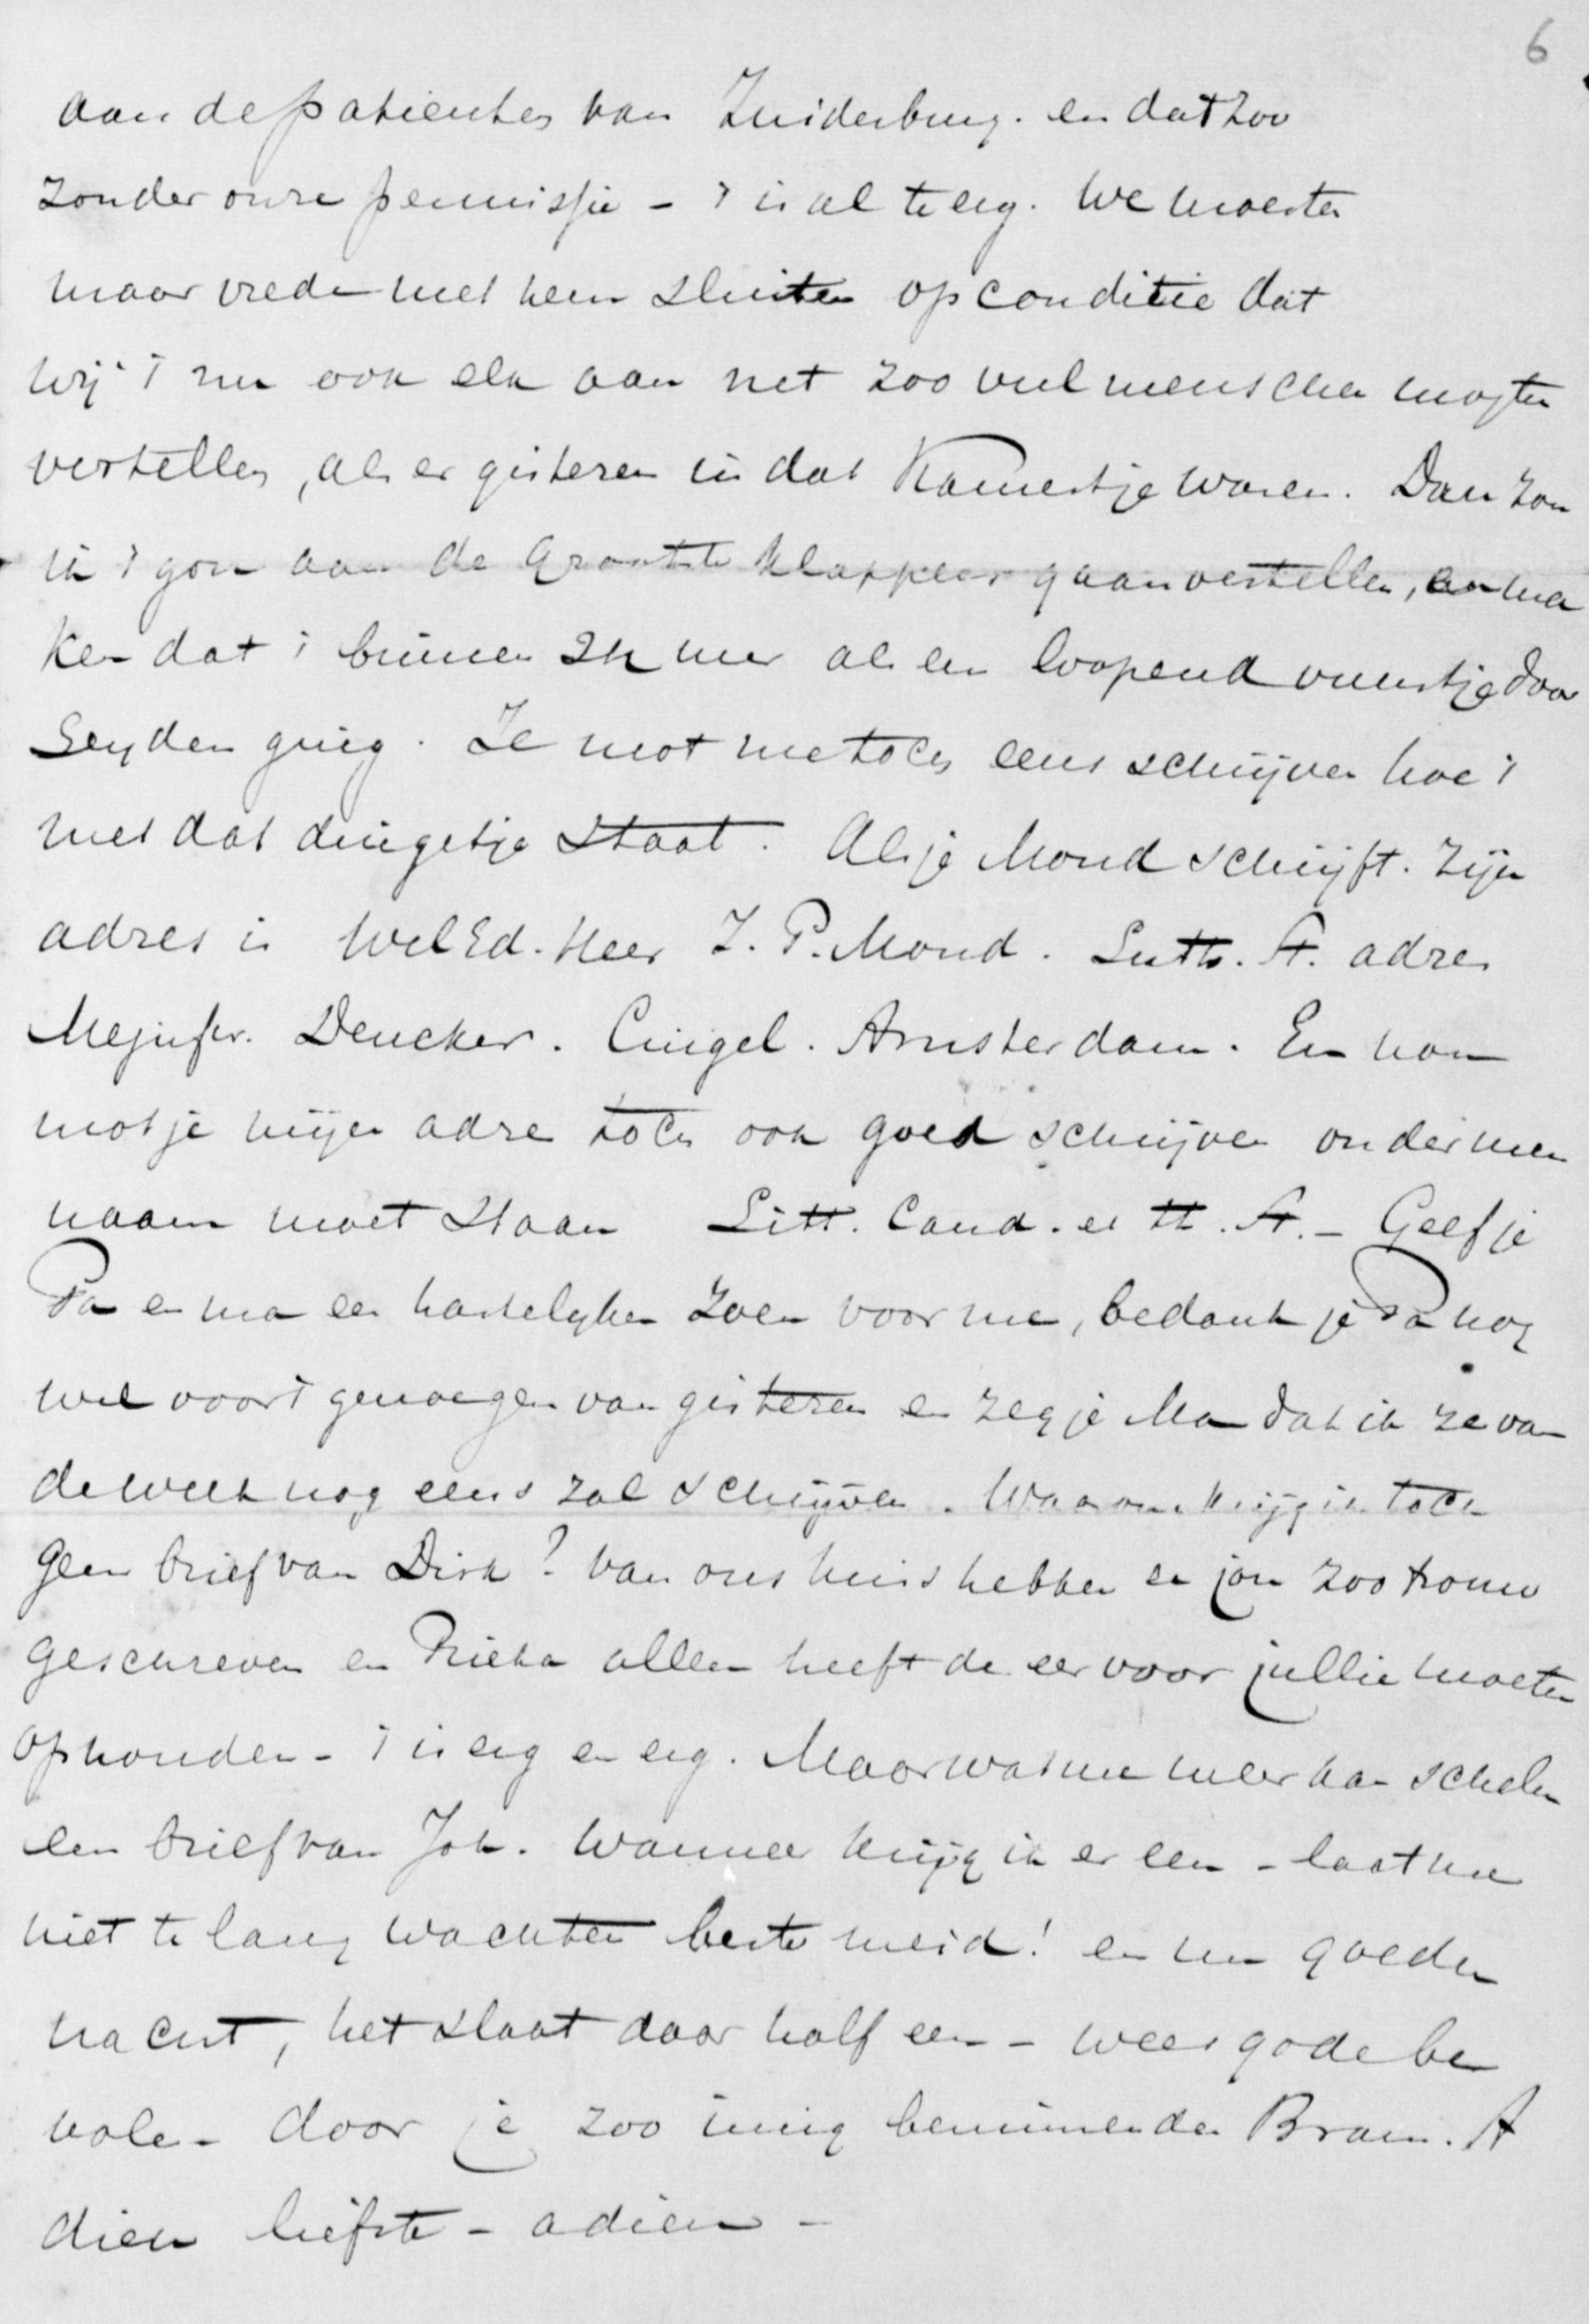 6
aan de patienten van Zuiderburg. en dat zoo
zonder onze permissie - 't is al te erg. We moesten
maar vrede met hem sluiten op conditie dat
wij 't nu ook elk aan net zoo veel menschen mogten
vertellen, als er gisteren in dat Kamertje waren. Dan zou
ik 't gou aan de grootste klappers gaan vertellen, en ma
ken dat 't binnen 24 uur als een loopend vuurtje door
Leyden ging. Je mot me toch eens schrijven hoe 't
met dat dingetje staat. Als je Mond schrijft. Zijn
adres is WelEd. Heer J. P. Mond. Luth. A. adres
Mejufvr. Deucker. Cingel. Amsterdam. En dan
mot je mijn adres toch ook goed schrijven onder men
naam moet staan Litt. Cand. et tt. A. - Geef je
Pa en ma een hartelyken zoen voor me, bedank je Pa nog
wel voor 't genoegen van gisteren en zeg je Ma dat ik ze van
de week nog eens zal schrijven. Waarom krijg ik toch
geen brief van Dirk? Van ons huis hebben ze jou zoo trouw
geschreven en Rieka alleen heeft de eer voor jullie moeten
ophouden - 't is erg en erg. Maar wat me meer kan schelen
een brief van Joh. Wanneer krijg ik er een - laat me
niet te lang wachten beste meid! en nu goeden
nacht, het slaat daar half een - wees gode be
volen door je zoo innig beminnenden Bram. A
dieu liefste - adieu -